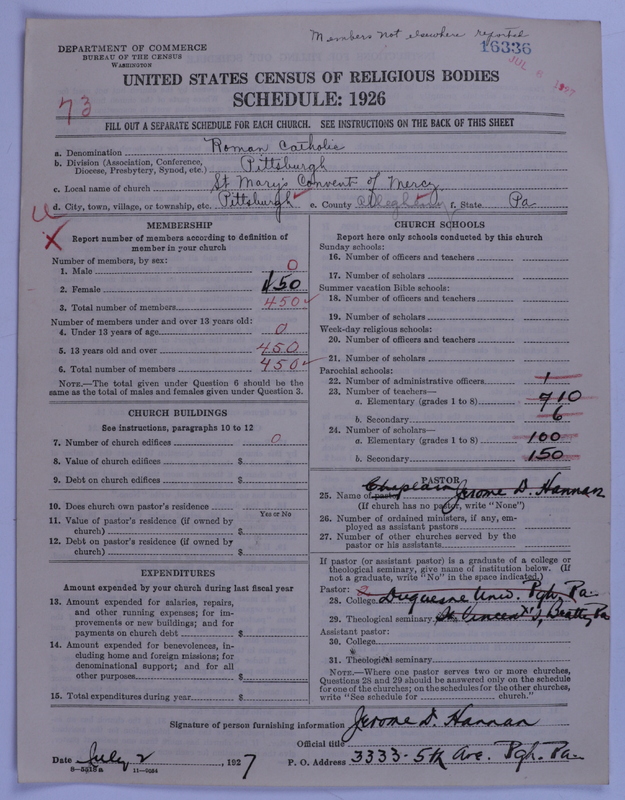 Members not elsewhere reported
16336
JUL 6 1927
DEPARTMENT OF COMMERCE
BUREAU OF THE CENSUS
WASHINGTON
UNITED STATES CENSUS OF RELIGIOUS BODIES
SCHEDULE: 1926
73
FILL OUT A SEPARATE SCHEDULE FOR EACH CHURCH. SEE INSTRUCTIONS ON THE BACK OF THIS SHEET
a. Denomination Roman Catholic
b. Division (Association, Conference, Diocese, Presbytery, Synod, etc.) Pittsburgh
c. Local name of church St Mary's Convent of Mercy
d. City, town, village, or township, etc. Pittsburgh e. County Allegheny f. State Pa
MEMBERSHIP
Report number of members according to definition of
member in your church
Number of members, by sex:
1. Male 0
2. Female 450
3. Total number of members 450
Number of members under and over 13 years old:
4. Under 13 years of age 0
5. 13 years old and over 450
6. Total number of members 450
NOTE.—The total given under Question 6 should be the
same as the total of males and females given under Question 3.
CHURCH BUILDINGS
See instructions, paragraphs 10 to 12
7. Number of church edifices 0
8. Value of church edifices $
9. Debt on church edifices $
10. Does church own pastor's residence?
Yes or No
11. Value of pastor's residence (if owned by
church) $
12. Debt on pastor's residence (if owned by
church) $
EXPENDITURES
Amount expended by your church during last fiscal year
13. Amount expended for salaries, repairs,
and other running expenses; for im-
provements or new buildings; and for
payments on church debt $
14. Amount expended for benevolences, in-
cluding home and foreign missions; for
denominational support; and for all
other purposes $
15. Total expenditures during year $
CHURCH SCHOOLS
Report here only schools conducted by this church
Sunday schools:
16. Number of officers and teachers
17. Number of scholars
Summer vacation Bible schools:
18. Number of officers and teachers
19. Number of scholars
Week-day religious schools:
20. Number of officers and teachers
21. Number of scholars
Parochial schools:
22. Number of administrative officers 1
23. Number of teachers—
a. Elementary (grades 1 to 8) 10
b. Secondary 6
24. Number of scholars—
a. Elementary (grades 1 to 8) 100
b. Secondary 150
PASTOR
25. Name of pastor Chaplain Jerome D. Hannan
(If church has no pastor, write "None")
26. Number of ordained ministers, if any, em-
ployed as assistant pastors
27. Number of other churches served by the
pastor or his assistants
If pastor (or assistant pastor) is a graduate of a college or
theological seminary, give name of institution below. (If
not a graduate, write "No" in the space indicated.)
Pastor:
28. College Duquesne Univ. Pgh, Pa.
29. Theological seminary St. Vincent's, Beatty, Pa
Assistant pastor:
30. College
31. Theological seminary
NOTE.—Where one pastor serves two or more churches,
Questions 28 and 29 should be answered only on the schedule
for one of the churches; on the schedules for the other churches,
write "See schedule for church."
Signature of person furnishing information Jerome D. Hannan
Official title
Date July 2, 1927 P. O. Address 3333-5th Ave. Pgh. Pa.
8-5218a 11-9034